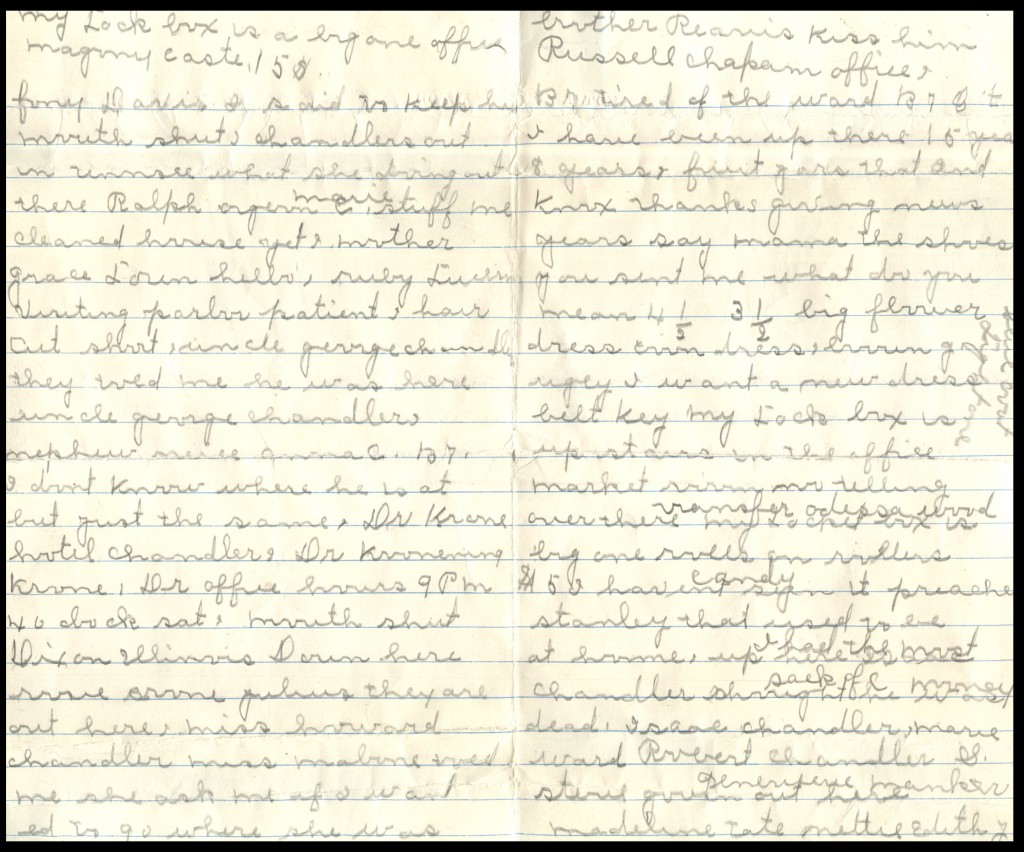 my Lock box is a big one office
magony caste, 15$
fony Davis I said to keep he
mouth shut, chandlers out
in what she bring out
marie
there Ralph C, stuff me
cleaned house yet, mother
grace Lorin hello, ruby
visiting parlor patient, hair
cut short, uncle george chandler
they toed me he was here
uncle george chandler,
nephew neice C. B7,
I dont know where he is at
but just the same, Dr Krone
hotel chandler, Dr Kronening
Krone, Dr office hours 9 P m
4 o clock sat, mouth shut
Dixon Illinois Down here
julius they are
out here, miss howard
chandler miss malone toed
me she ask me if I want
ed to go where she was
brother Reavis kiss him
Russell chapam office,
B7, tired of the ward B7 &
I have been up there 15 yea
8 years, fruit jars that and
Knox thanks giving news
years say mama the shoes
you sent me what do you
mean 4 1/5 3 1/2 big flower
dress dress, brown
ugey I want a new dress
belt key my Lock box is
up stairs in the office
market no telling
transfer odessa wood
over there my Locke box is
big one rolls on rollers
candy
$15 I havent sign it preache
stanley that used to be
at home, up here
I have the most
sack of money
chandler thought he was
dead, Isaac chandler, marie
ward Robert chandler G.
Genevieve manker
out here
madeline tate nettie Edith